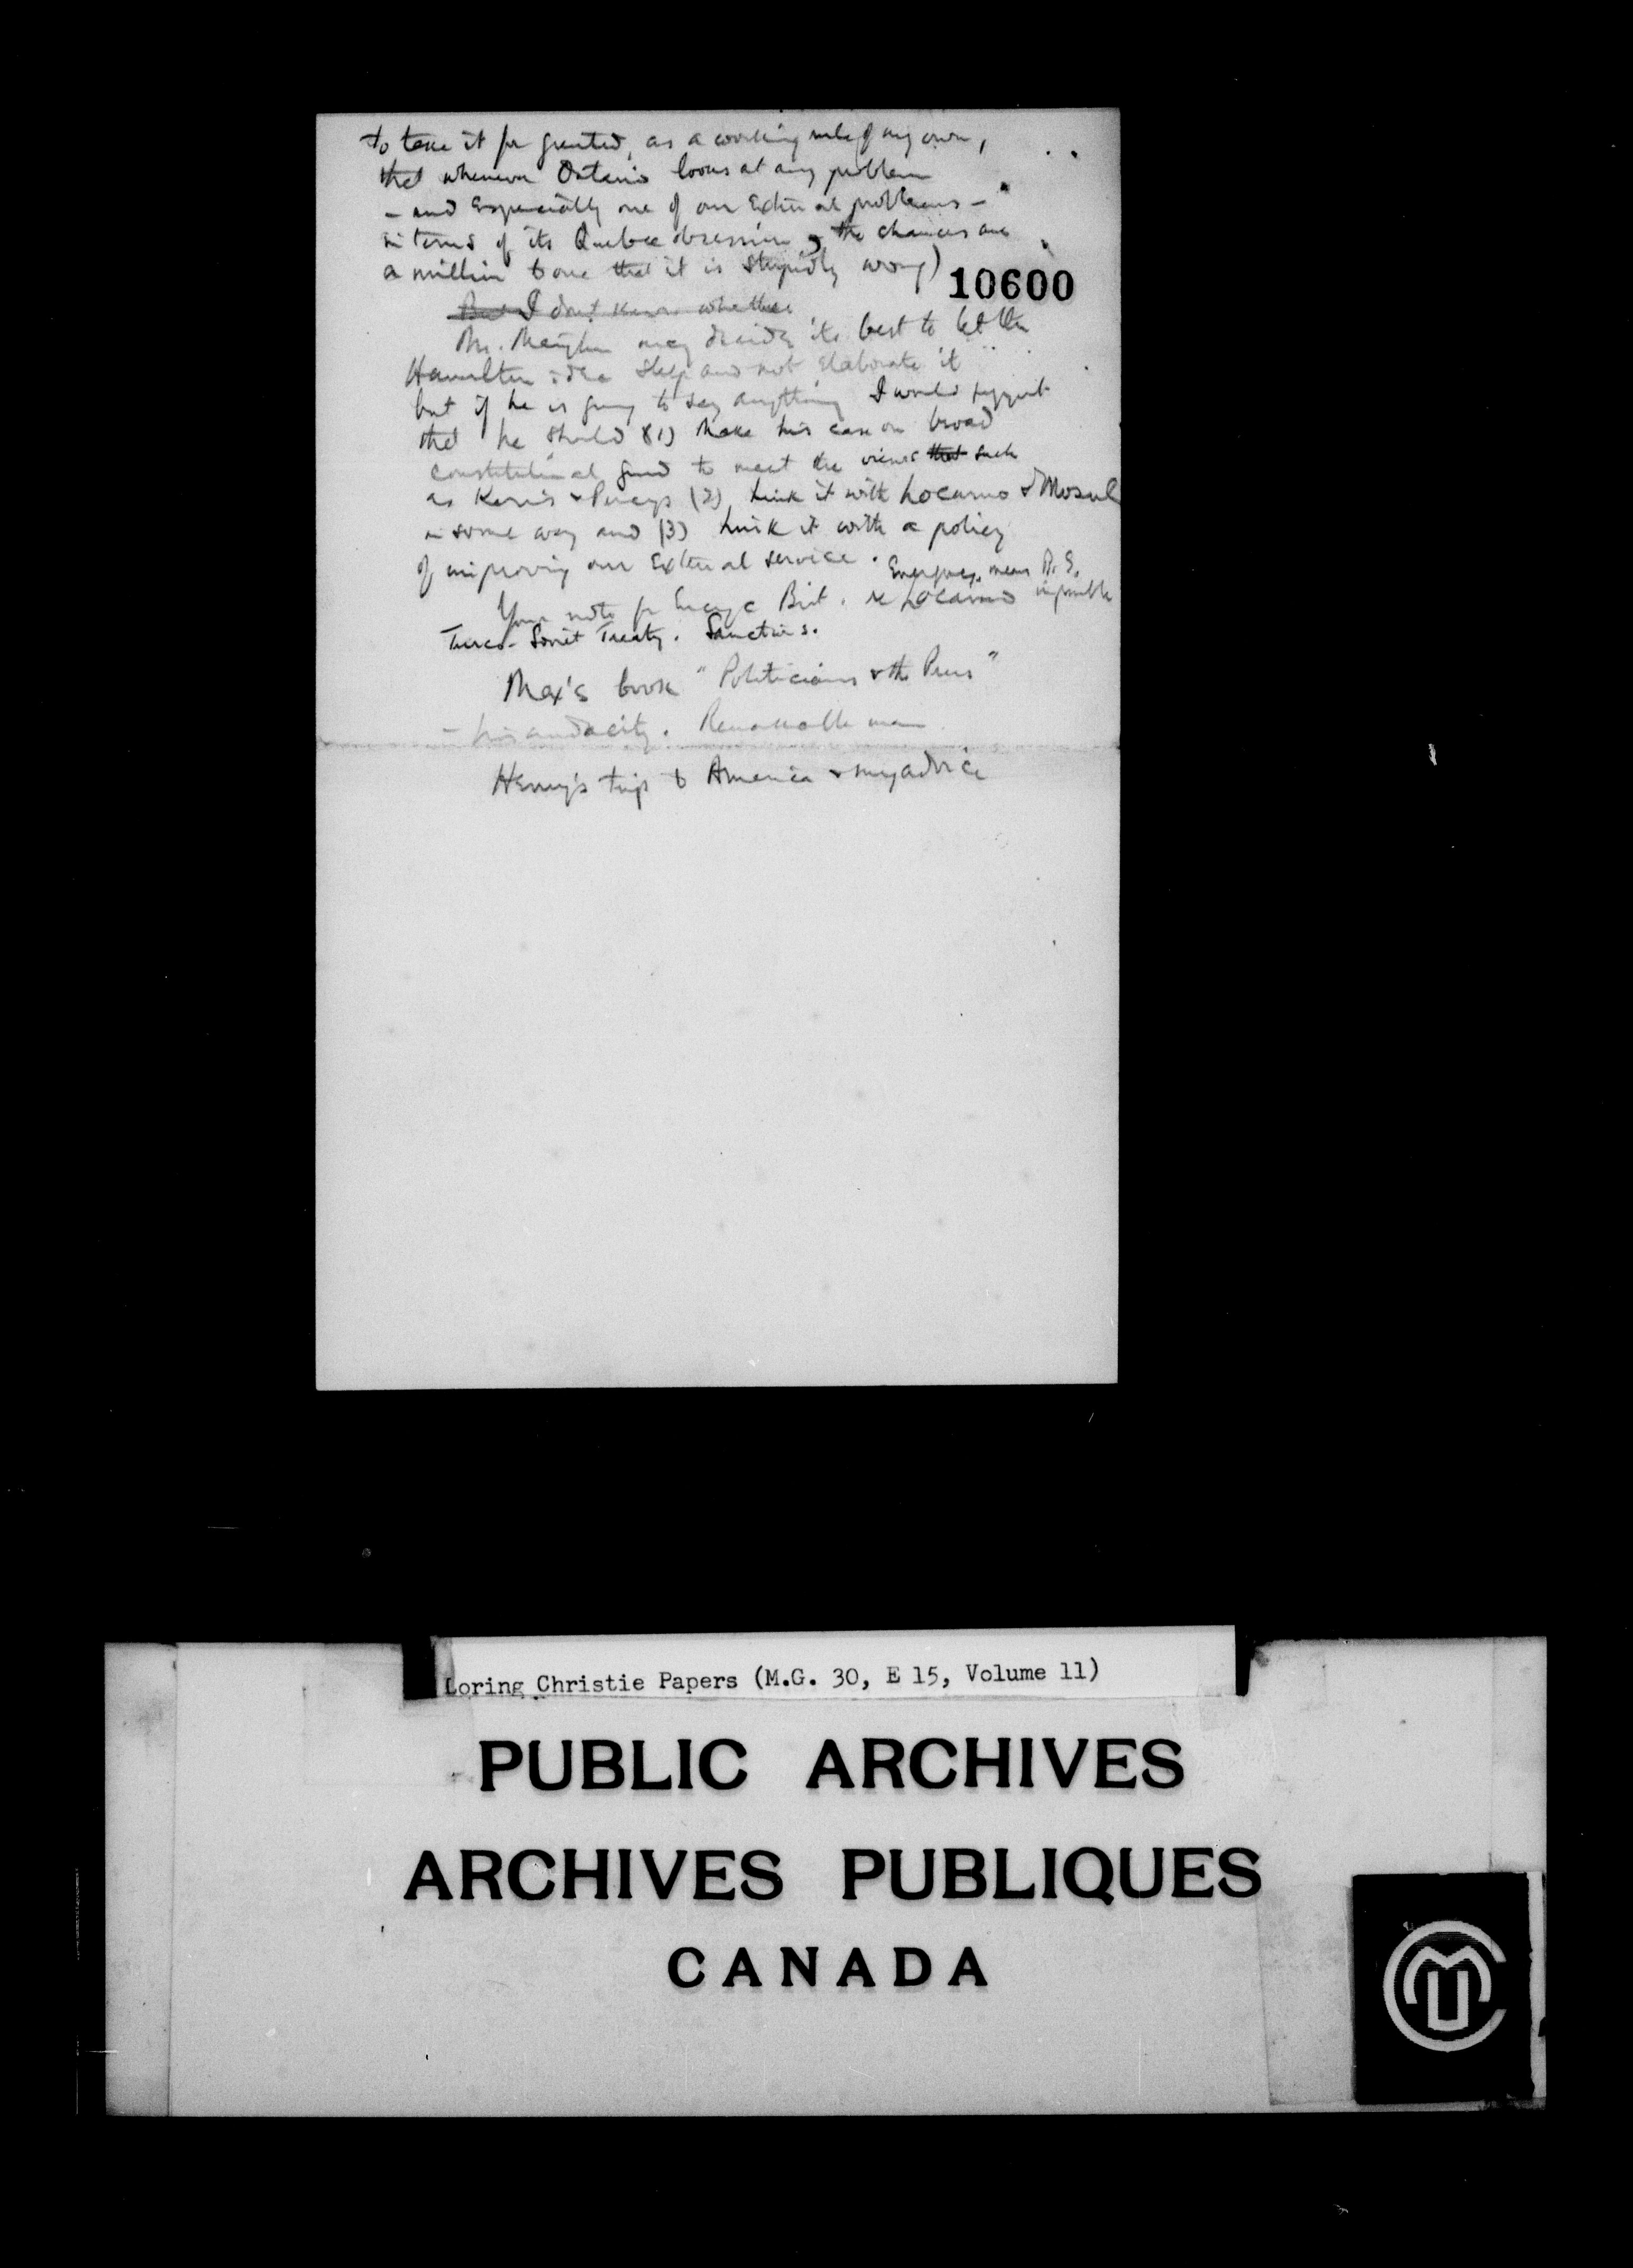 to take it for granted, as a working rule of my own,
that whenever Ontario looks at any problem
- and especially one of our External problems -
in terms of its Quebec obsession, the chances are
a million to one that it is stupidly wrong)
10600
But I don't know whether
Mr. Meighen may decide its best to let the
Hamilton idea sleep and not elaborate it
but if he is going to say anything I would suggest
that he should (1) Make his case on broad
constitutional ground to meet the views that such
as Kerr's & Percy's (2) Link it with Locarno & Mosul
in some way and (3) Link it with a policy
of improving our External service.
Emergency means impossible
Your note for Encyc Brit. re Locarno
Turco-Soviet Treaty. Sanctions.
Max's book "Politicians & the Press"
- his audacity. Remarkable man
Henry's trip to America & my advice
Loring Christie Papers (M.G. 30, E 15, Volume 11)
PUBLIC ARCHIVES
ARCHIVES PUBLIQUES
CANADA